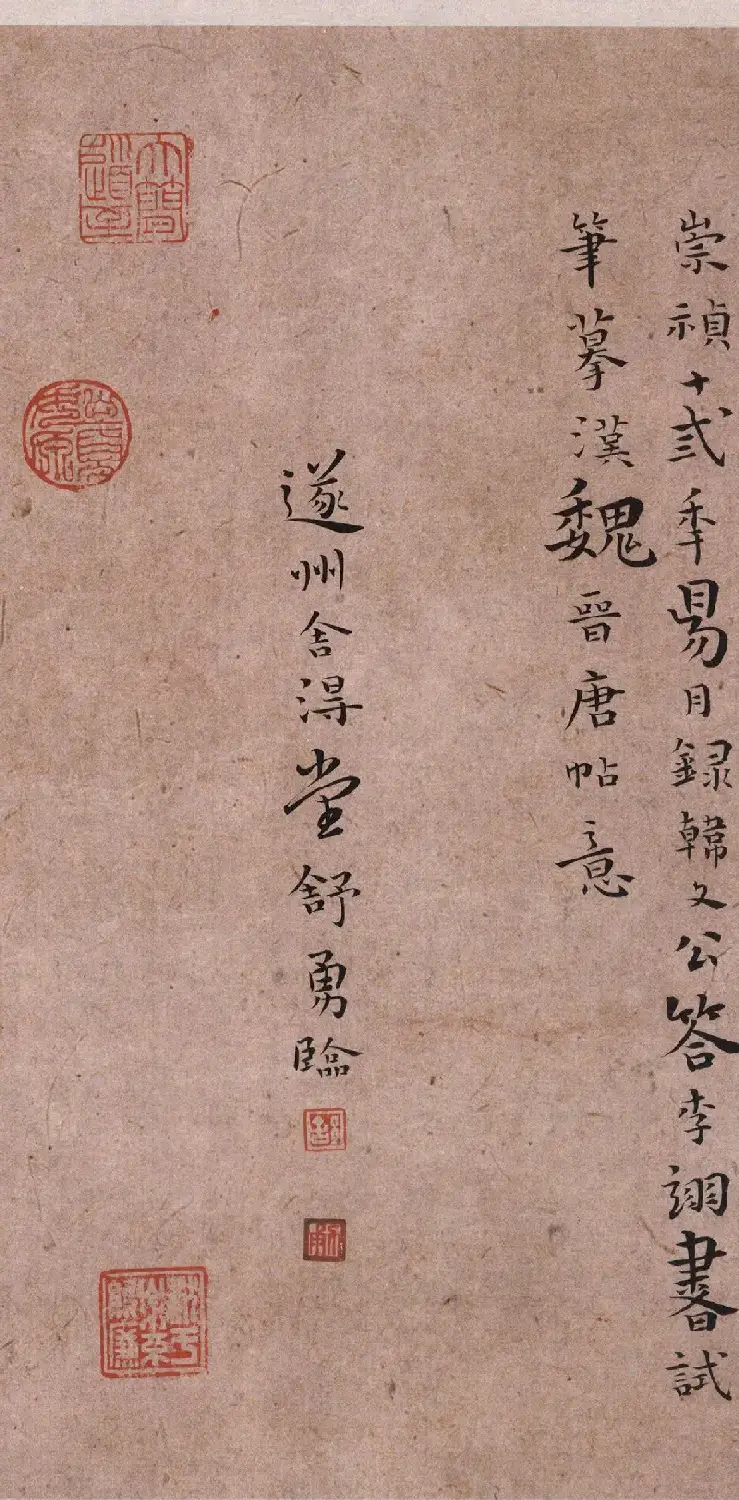 崇禎十弎秊昜月録韓文公答李翊書試
筆摹漢魏晉唐帖意
遂州舍得堂舒勇臨